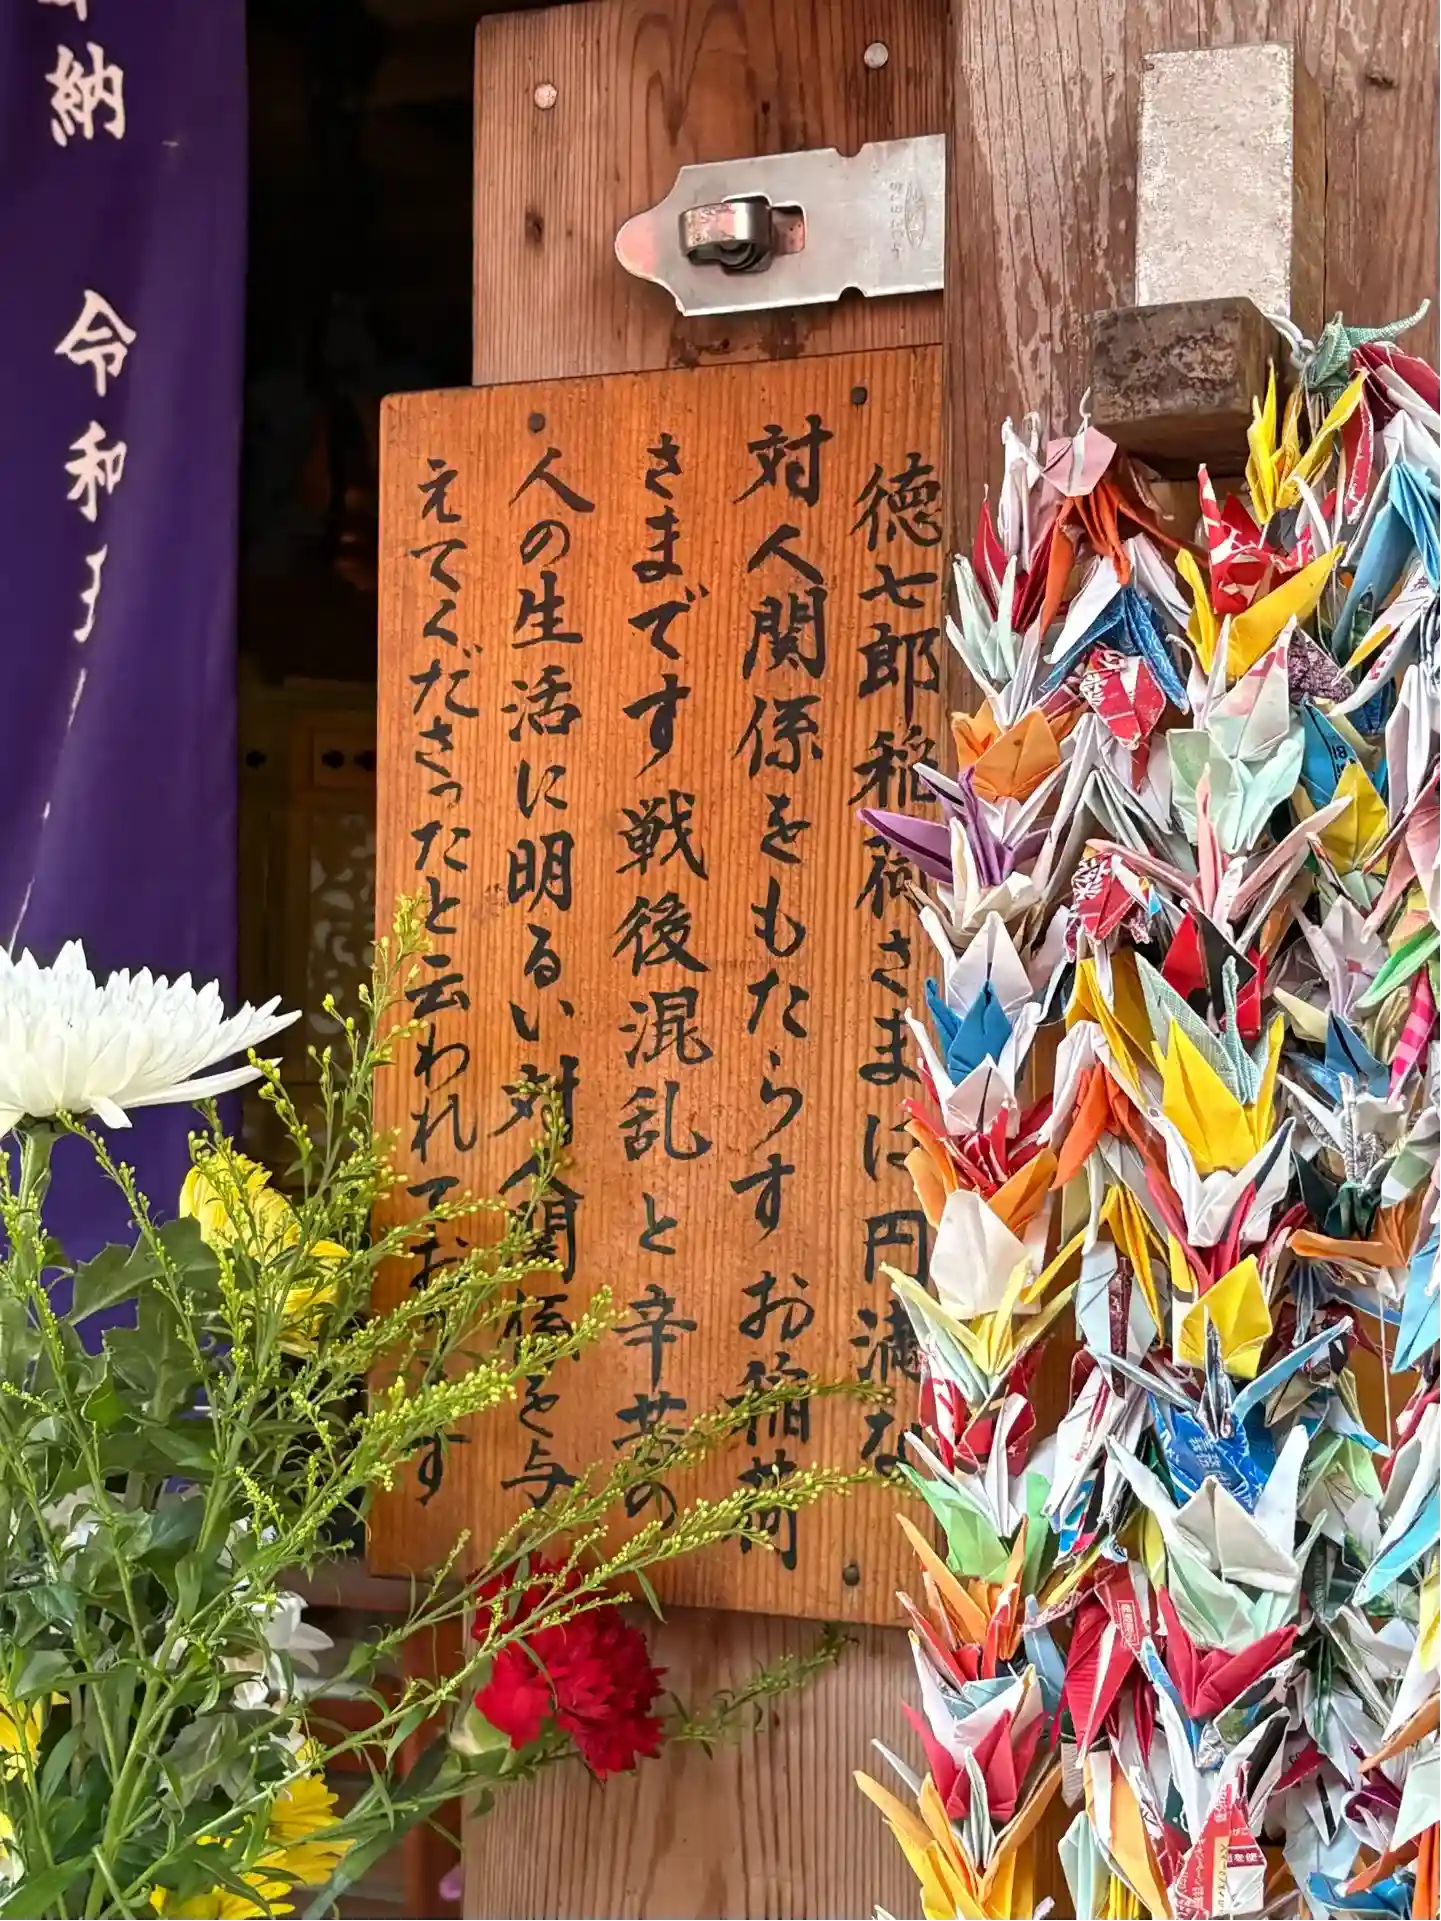 徳七郎稲荷さまは円満な
対人関係をもたらすお稲荷
さまです戦後混乱と辛苦の
人の生活に明るい対人関係を与
えてくださったと云われております
奉納
令和